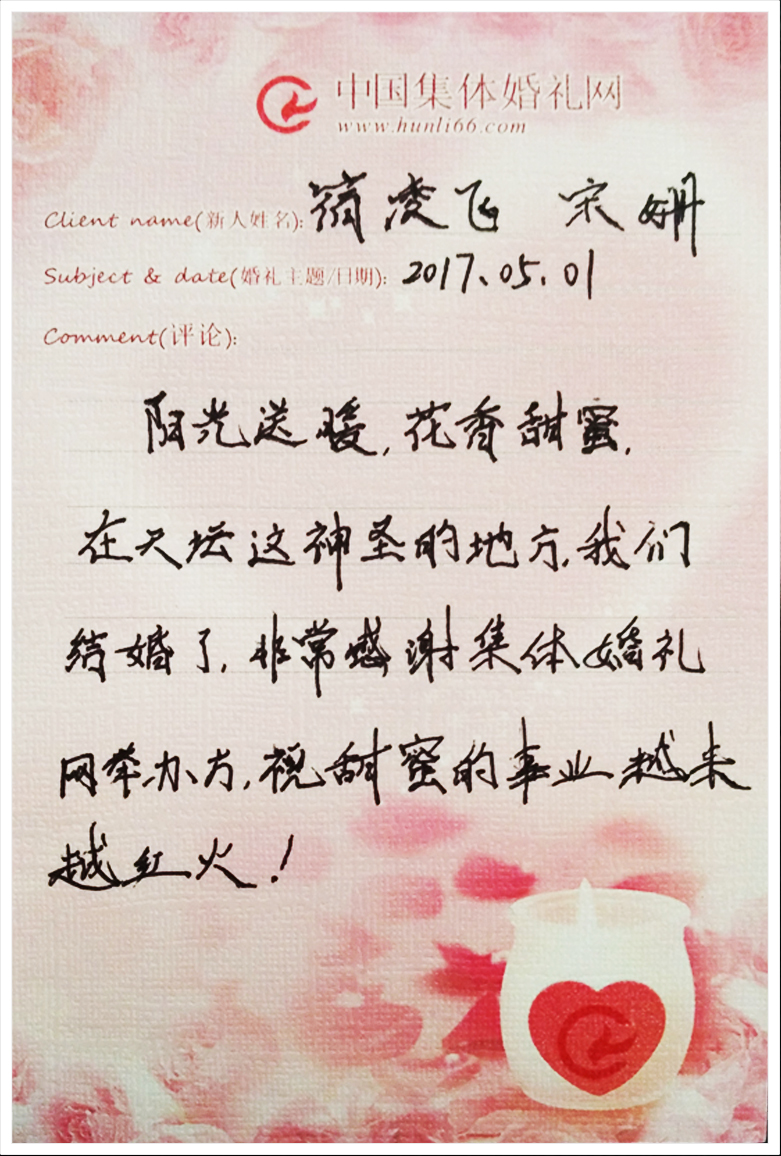 中国集体婚礼网
www.hunli66.com
Client name(新人姓名): 凌飞 宋姗
Subject & date(婚礼主题/日期): 2017.05.01
Comment(评论):
阳光送暖,花香甜蜜,
在天坛这神圣的地方,我们
结婚了,非常感谢集体婚礼
网举办方,祝甜蜜的事业越来
越红火!